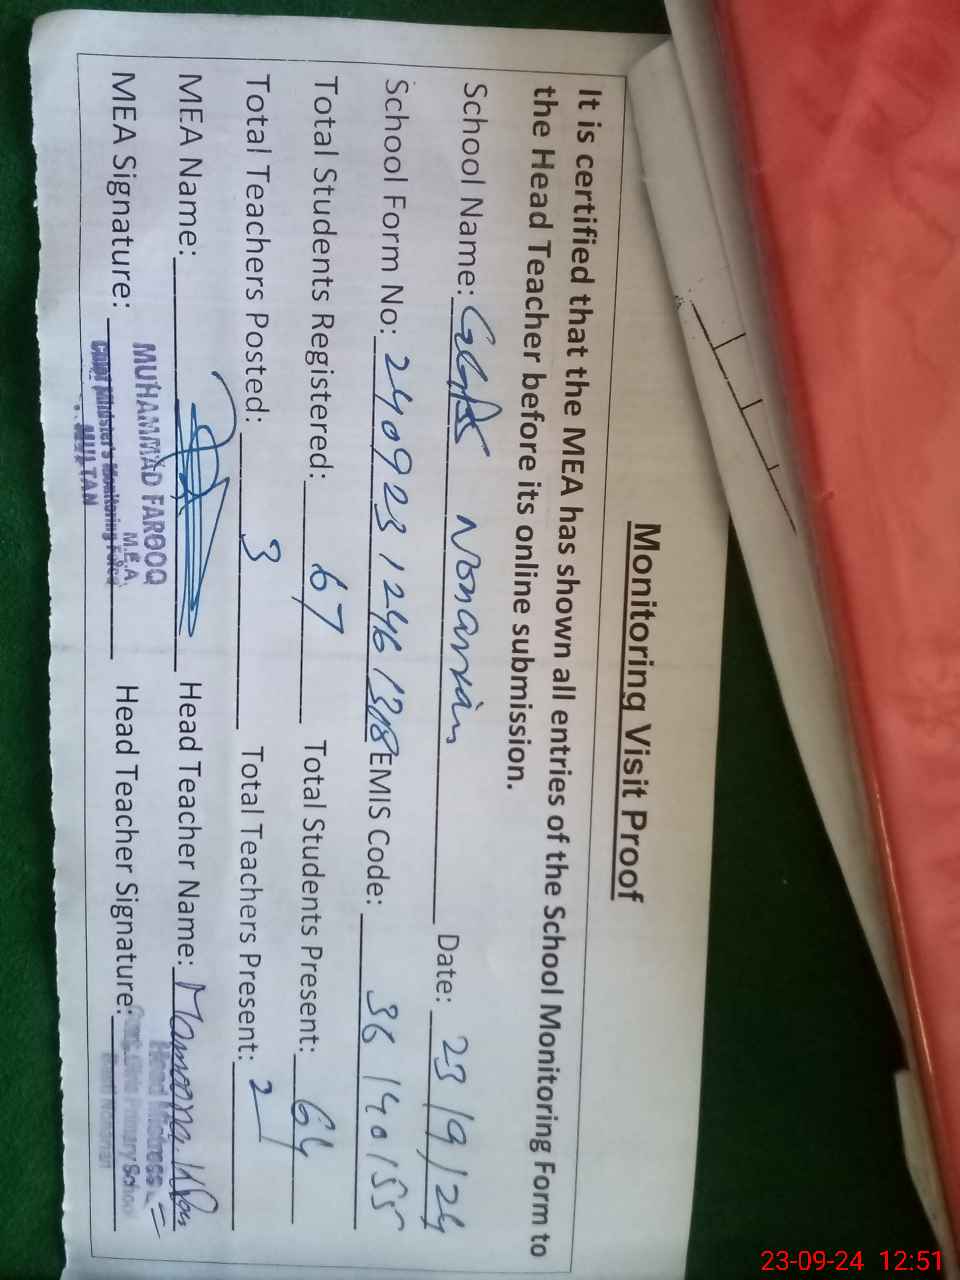 Monitoring Visit Proof
It is certified that the MEA has shown all entries of the School Monitoring Form to
the Head Teacher before its online submission.
School Name: GGPS Date: 23/9/24
School Form No: EMIS Code: 36140155
Total Students Registered: 67 Total Students Present: 64
Total Teachers Posted: 3 Total Teachers Present: 2
MEA Name: Head Teacher Name: Mamoona
MEA Signature: Head Teacher Signature:
MUHAMMAD FAROOQ
M.E.A
Chief Minister's Monitoring Force
MULTAN
Head Mistress
Govt. Girls Primary School
23-09-24 12:51